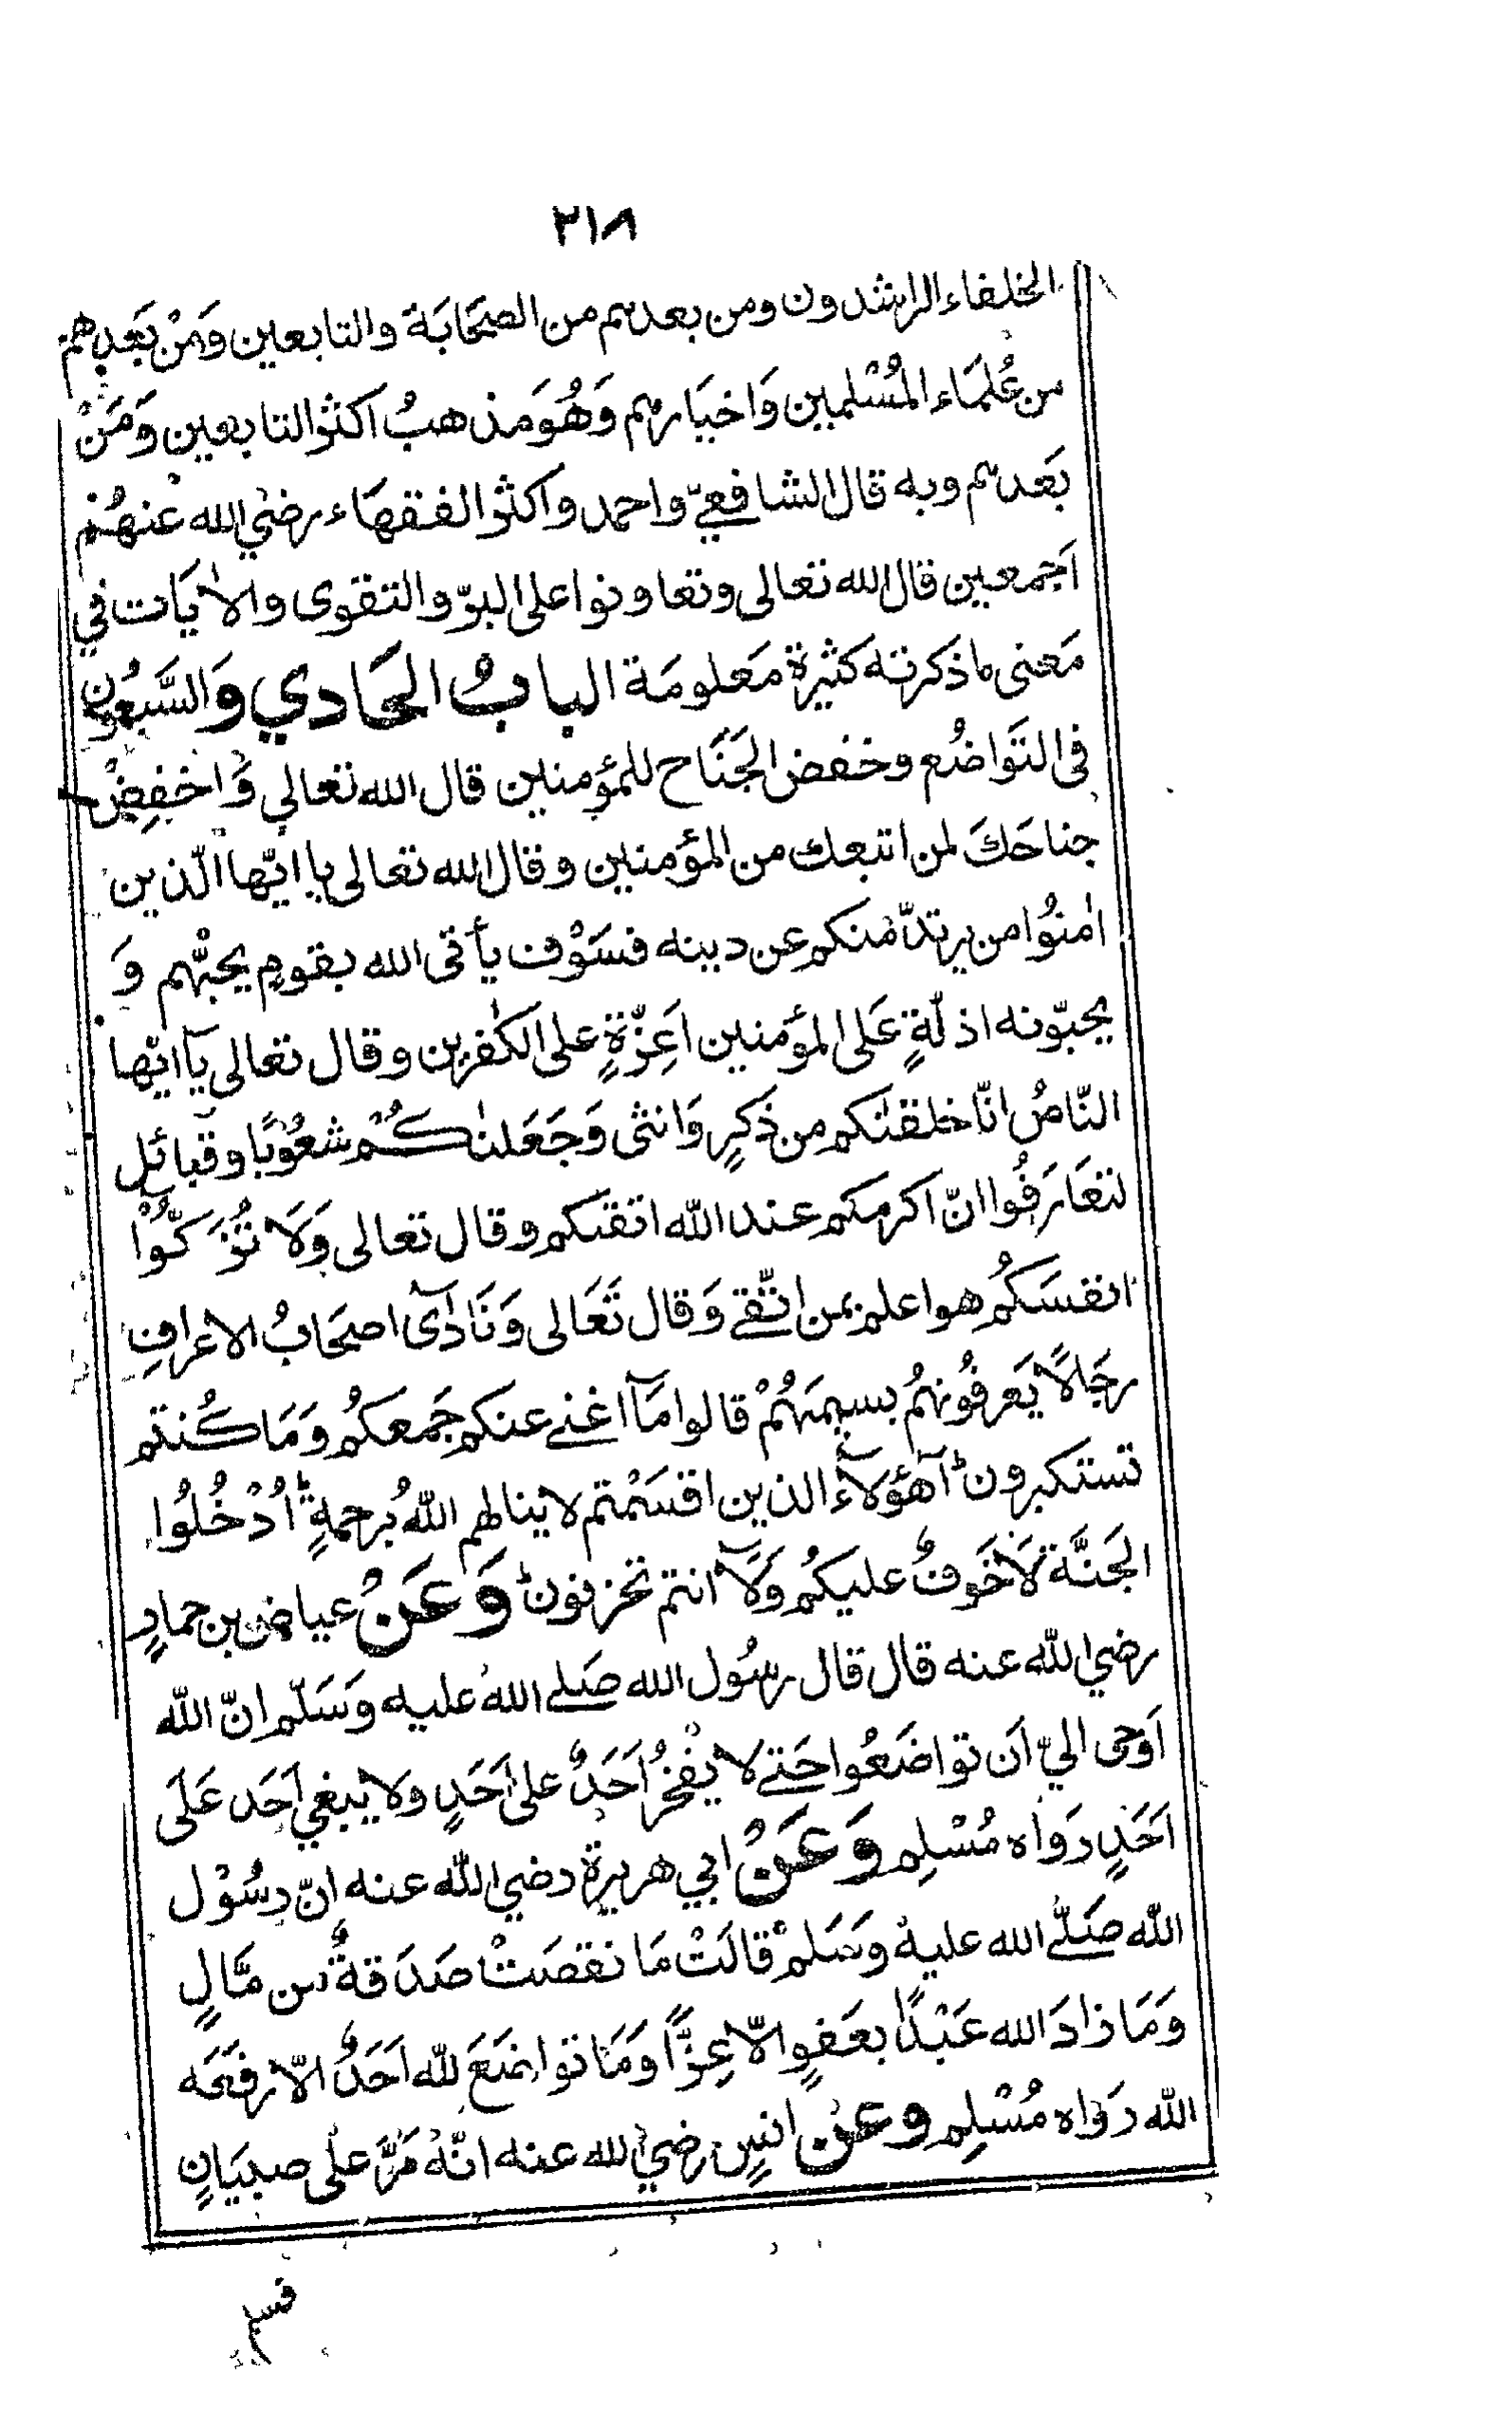 ٢١٨
الخلفاء الراشدون ومن بعدهم من الصَحَابَة والتابعين وَمَنْ بَعدهم
من عُلمَاء المُسْلمين وَاخيَارهم وَهُوَ مذهبُ اكثر التابعين وَمَنْ
بَعدهم وبه قال الشافعيّ واحمد واكثر الفقهَاء رضي الله عنهُم
اَجمعين قال الله تعالى وتعاونوا على البرّ والتقوى والاٰيَات في
مَعنى ما ذكرته كثيرة مَعلومَة البابُ الحَادي وَالسَّبعُون
فى التَواضُع وخفض الجَنَاح للمؤمنين قال الله تعالي وَاخفِضْ
جناحَكَ لمن اتبعك من المؤمنين وقال الله تعالى يا ايّها الّذين
اٰمنُوا من يرتدّ منكم عن دينه فسَوْف يأتى الله بقومٍ يحبّهم وَ
يحبّونه اذلّةٍ عَلى المؤمنين اَعِزّةٍ على الكٰفرين وقال تعالى يآ ايّها
النّاسُ انّا خلقنٰكم من ذَكرٍ وَانثى وَجَعَلنٰكُمْ شعُوبًا وقبائل
لتعَارَفُوا انّ اكرمكم عند الله اتقىكم وقال تعالى وَلَا تُزَكّوْا
انفسَكُم هو اعلم بمن اتّقے وَقال تَعَالى وَنَادٰٓى اصحَابُ الاعرافِ
رجَالًا يَعرفُونهُم بسيمٰهُمْ قالوا مَآ اغنے عنكم جَمعكُم وَمَا كُنتم
تستكبرون آهٰؤلَآءِ الذين اقسَمْتم لا ينالهم اللهُ برحمةٍ اُدْخُلُوا
الجَنَّة لَا خَوفٌ عليكُم وَلَآ انتم تحزنون وَعَنْ عياض بن حمادٍ
رضي الله عنه قال قال رسُول الله صَلے اللهُ عليه وَسَلّم انّ الله
اَوحى اليّ اَن تواضَعُوا حَتے لا يفخرُ اَحَدٌ على اَحَدٍ ولا يبغي اَحَد عَلَى
اَحَدٍ رَوَاه مُسْلِم وَعَنْ ابي هريرة رضي الله عنه انّ رسُوْل
الله صَلّے الله عليهِ وَسَلمْ قالَتْ مَا نقصَتْ صَدَقةٌ من مَّالٍ
وَمَا زادَ الله عَبْدًا بعَفوٍ الّا عِزًّا وَمَا تواضَعَ لله اَحَدٌ الّا رفَعَه
الله رَوَاه مُسْلِم وعن انسٍ رضي الله عنه انّهُ مَرَّ على صبيَانٍ